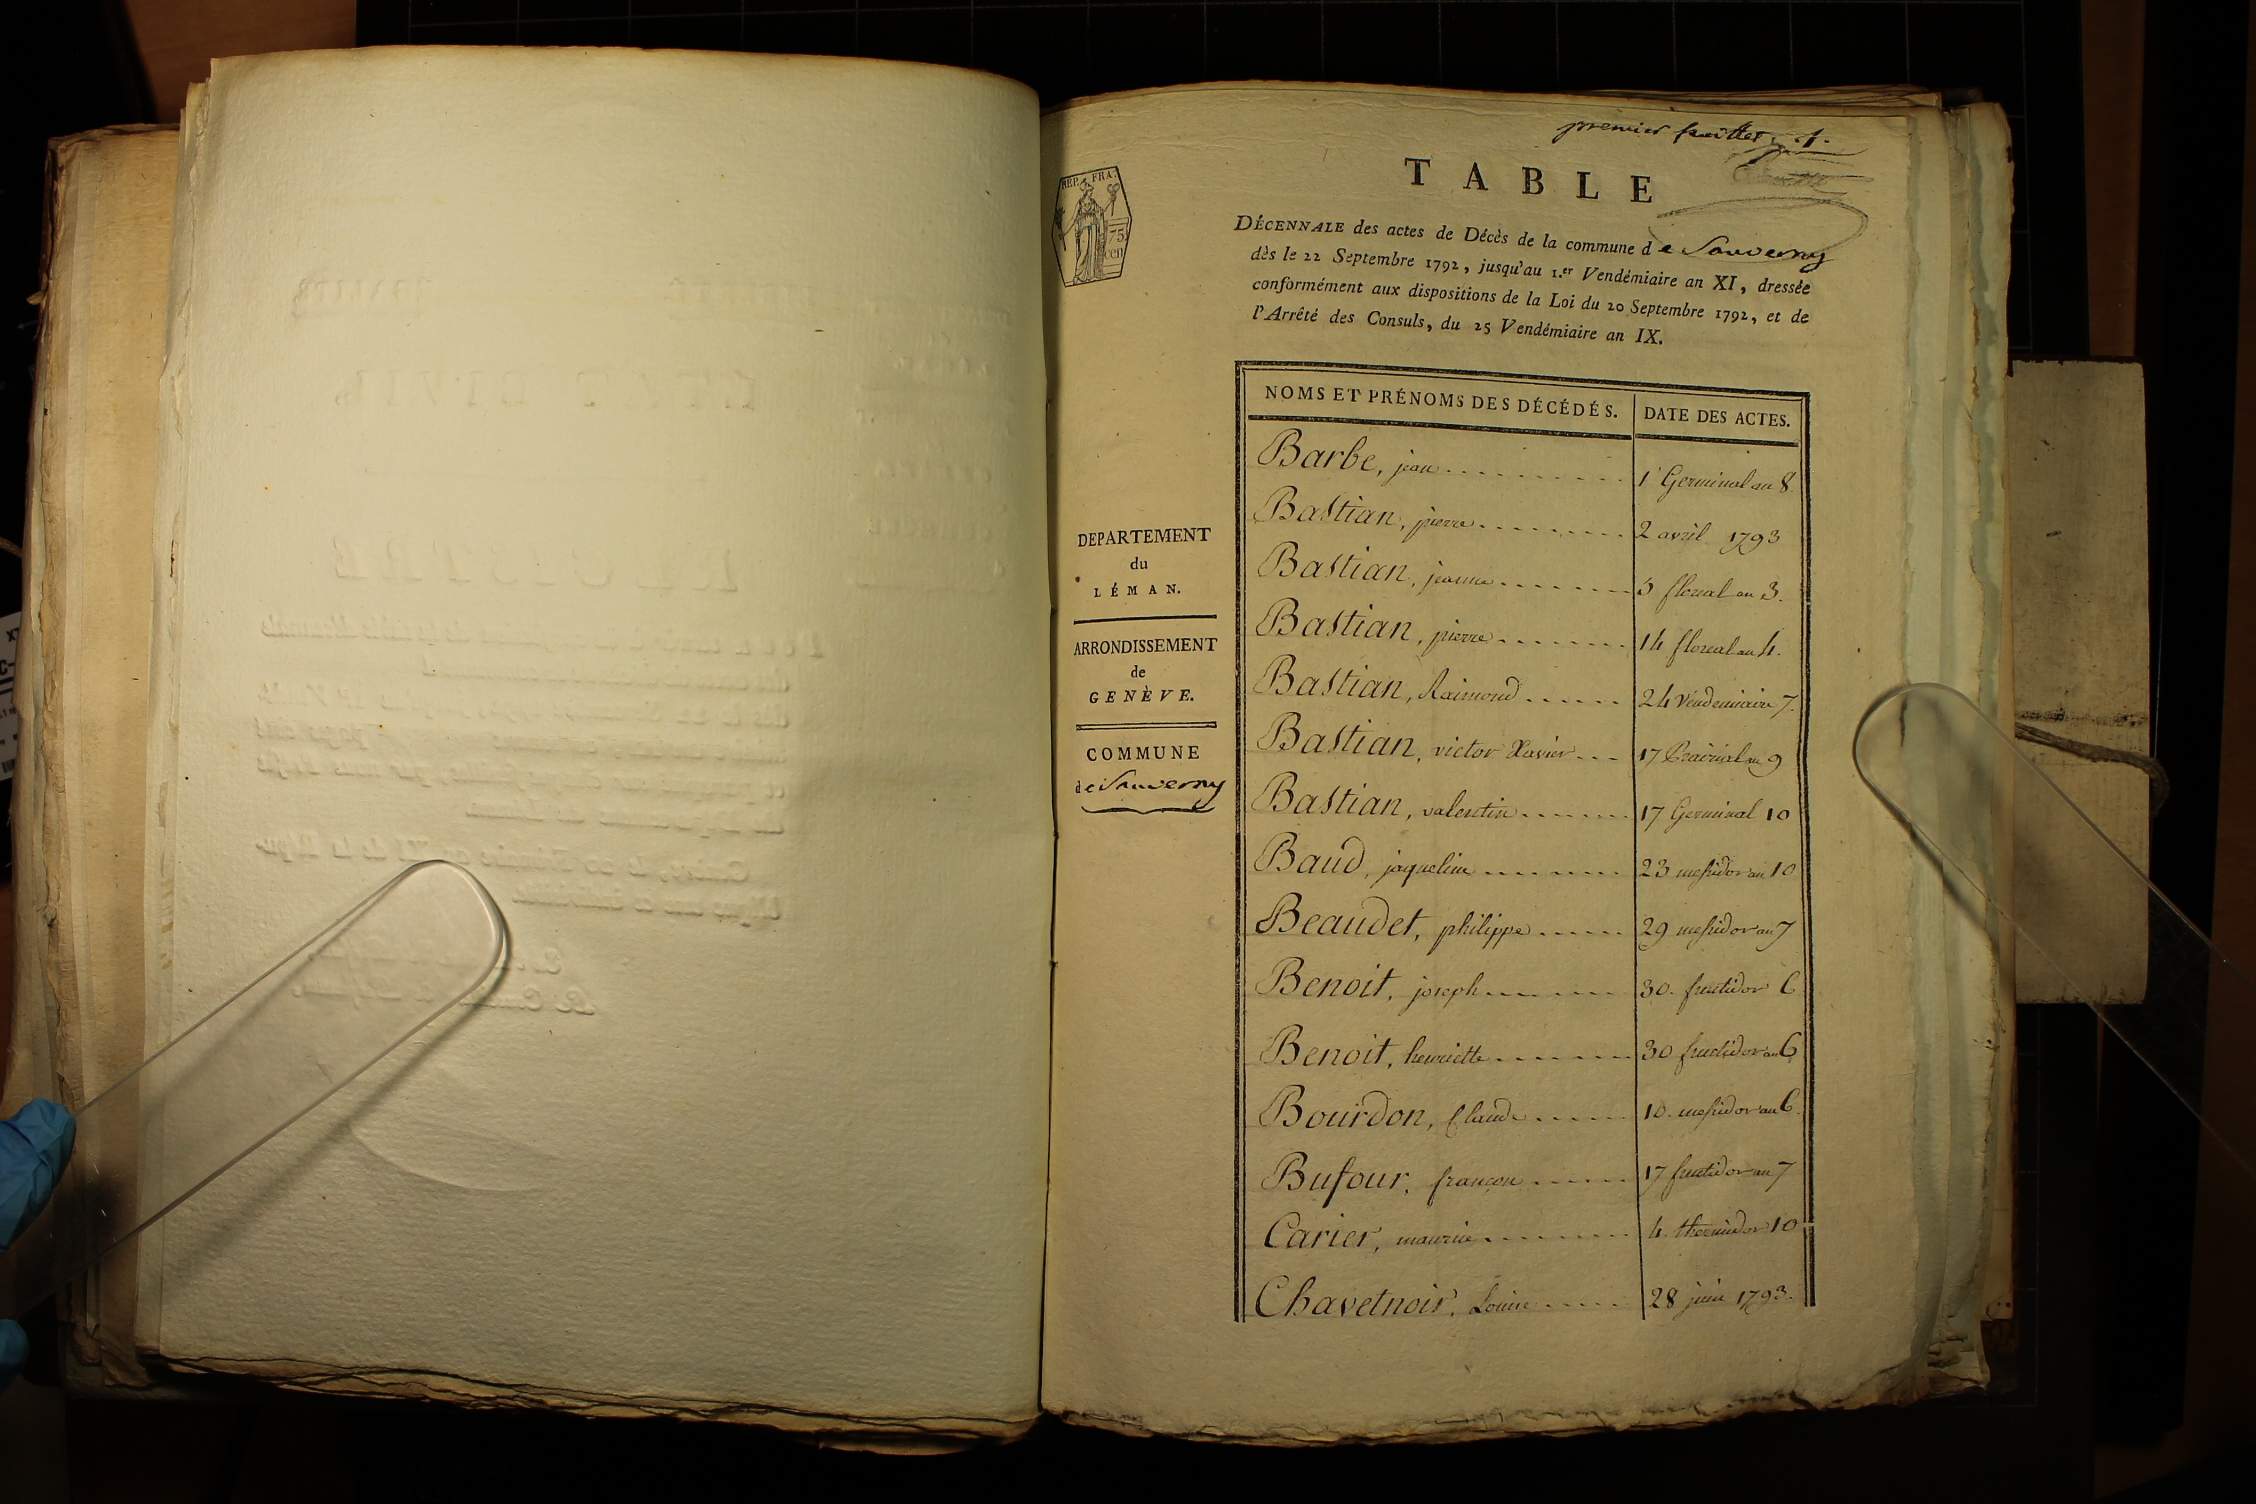 premier feuillet. 1.
REP. FRA.
75
cen
TABLE
DÉCENNALE des actes de Décès de la commune de Sauverny
dès le 22 Septembre 1792, jusqu'au 1.er Vendémiaire an XI, dressée
conformément aux dispositions de la Loi du 20 Septembre 1792, et de
l'Arrêté des Consuls, du 25 Vendémiaire an IX.
DEPARTEMENT
du
LÉMAN.
ARRONDISSEMENT
de
GENÈVE.
COMMUNE
de Sauverny
NOMS ET PRÉNOMS DES DÉCÉDÉS. DATE DES ACTES.
Barbe, jean 1 Germinal an 8
Bastian, pierre 2 avril 1793
Bastian, jeanne 5 floreal an 3.
Bastian, pierre 14 floreal an 4.
Bastian, Raimond 24 Vendemiaire 7.
Bastian, victor Xavier 17 Prairial an 9
Bastian, valentin 17 Germinal 10
Baud, jaqueline 23 messidor an 10
Beaudet, philippe 29 messidor an 7
Benoit, joseph 30. fructidor 6
Benoit, henriette 30 fructidor an 6
Bourdon, Claude 10. messidor an 6.
Bufour, françon 17 fructidor an 7
Carier, maurice 4. thermidor 10
Chavetnoir, Louise 28 juin 1793.